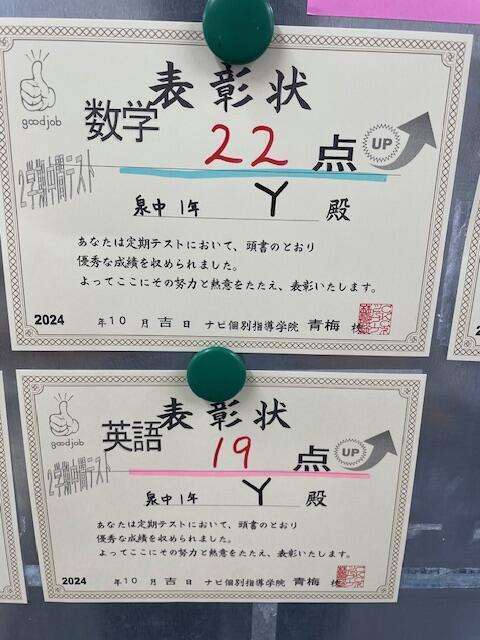 goodjob
表彰状
数学
22点 UP
2学期中間テスト
泉中 1年 Y 殿
あなたは定期テストにおいて、頭書のとおり
優秀な成績を収められました。
よってここにその努力と熱意をたたえ、表彰いたします。
2024 年10 月吉日 ナビ個別指導学院 青梅 校
goodjob
表彰状
英語
19点 UP
2学期中間テスト
泉中 1年 Y 殿
あなたは定期テストにおいて、頭書のとおり
優秀な成績を収められました。
よってここにその努力と熱意をたたえ、表彰いたします。
2024 年10 月吉日 ナビ個別指導学院 青梅 校